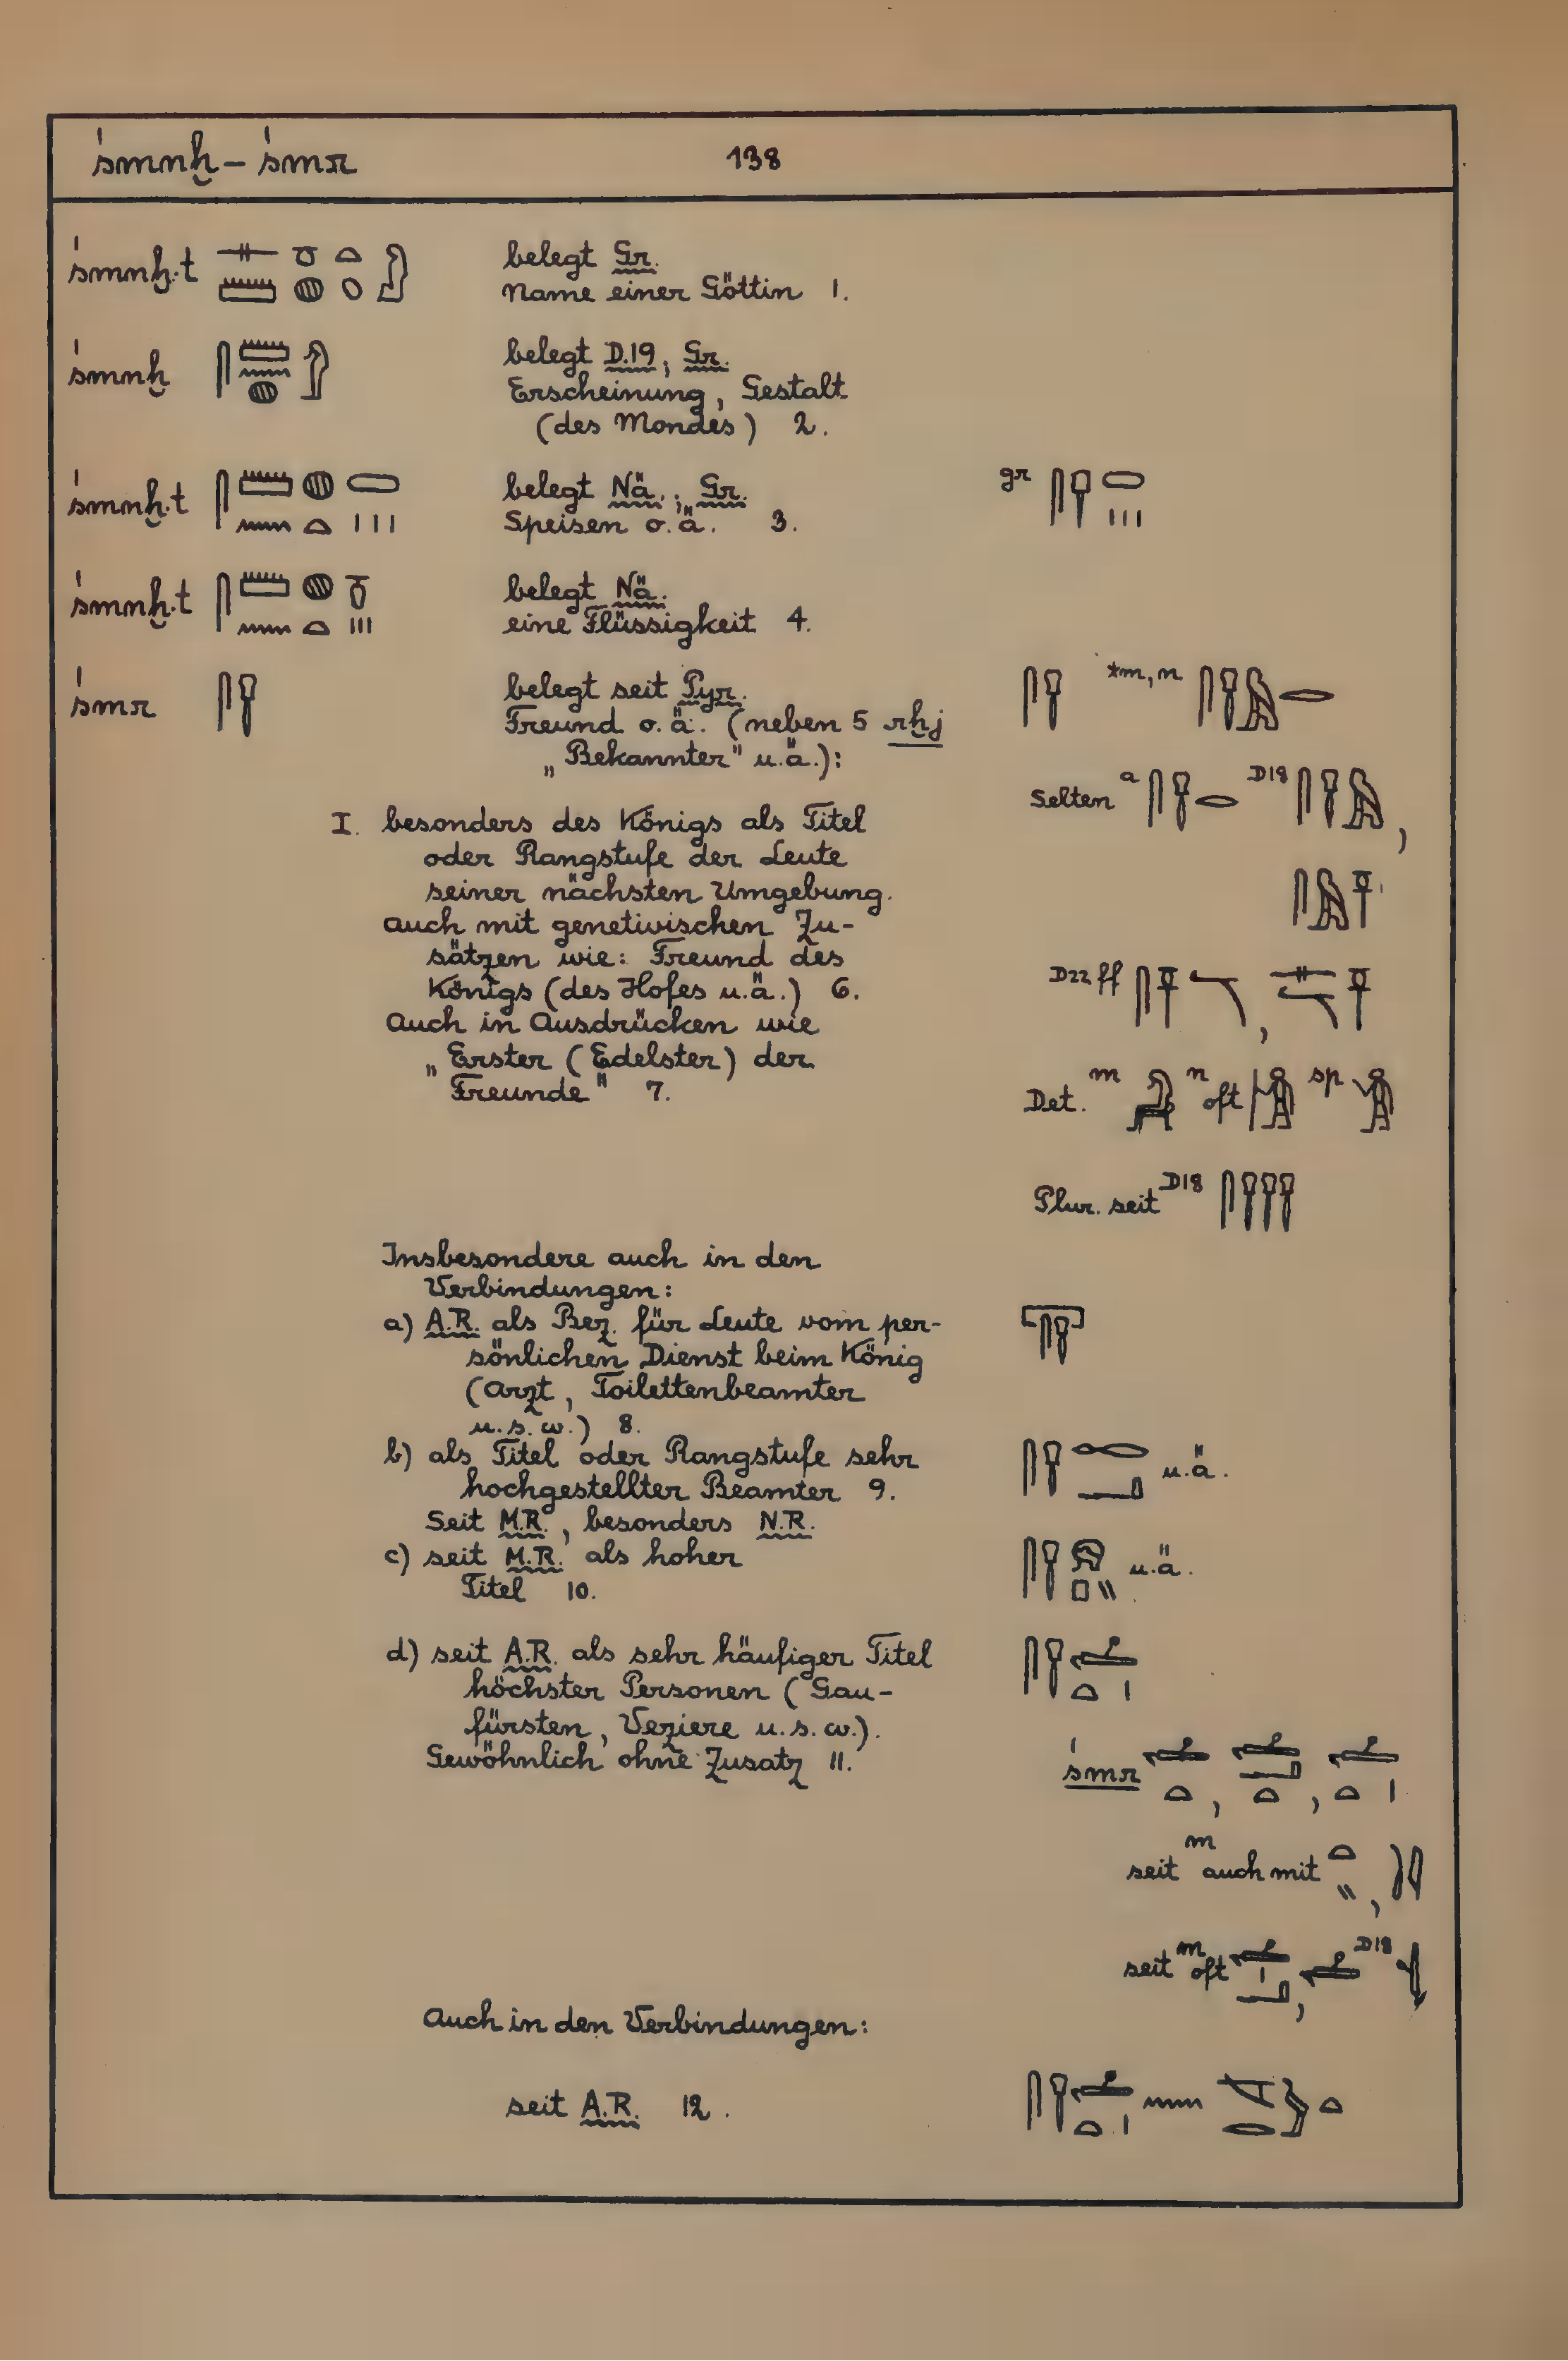 śmnḫ – śmr 138
śmnḫ.t belegt Gr.
Name einer Göttin 1.
śmnḫ belegt D.19, Gr.
Erscheinung, Gestalt
(des Mondes) 2.
śmnḫ.t belegt Nä., Gr. gr
Speisen o.ä. 3.
śmnḫ.t belegt Nä.
eine Flüssigkeit 4.
śmr belegt seit Pyr. *m, n
Freund o.ä. (neben 5 rḫj
„Bekannter" u.ä.):
Selten a D18 ,
I. besonders des Königs als Titel
oder Rangstufe der Leute
seiner nächsten Umgebung.
Auch mit genetivischen Zu-
sätzen wie: Freund des
Königs (des Hofes u.ä.) 6.
D22 ff ,
Auch in Ausdrücken wie
„Erster (Edelster) der
Freunde" 7.
Det. m n oft sp
Plur. seit D18
Insbesondere auch in den
Verbindungen:
a) A.R. als Bez. für Leute vom per-
sönlichen Dienst beim König
(Arzt, Toilettenbeamter
u.s.w.) 8.
b) als Titel oder Rangstufe sehr
hochgestellter Beamter 9. u.ä.
Seit M.R., besonders N.R.
c) seit M.R. als hoher u.ä.
Titel 10.
d) seit A.R. als sehr häufiger Titel
höchster Personen (Gau-
fürsten, Veziere u.s.w.).
Gewöhnlich ohne Zusatz 11. śmr , ,
seit m auch mit ,
seit m oft , D18
Auch in den Verbindungen:
seit A.R. 12.